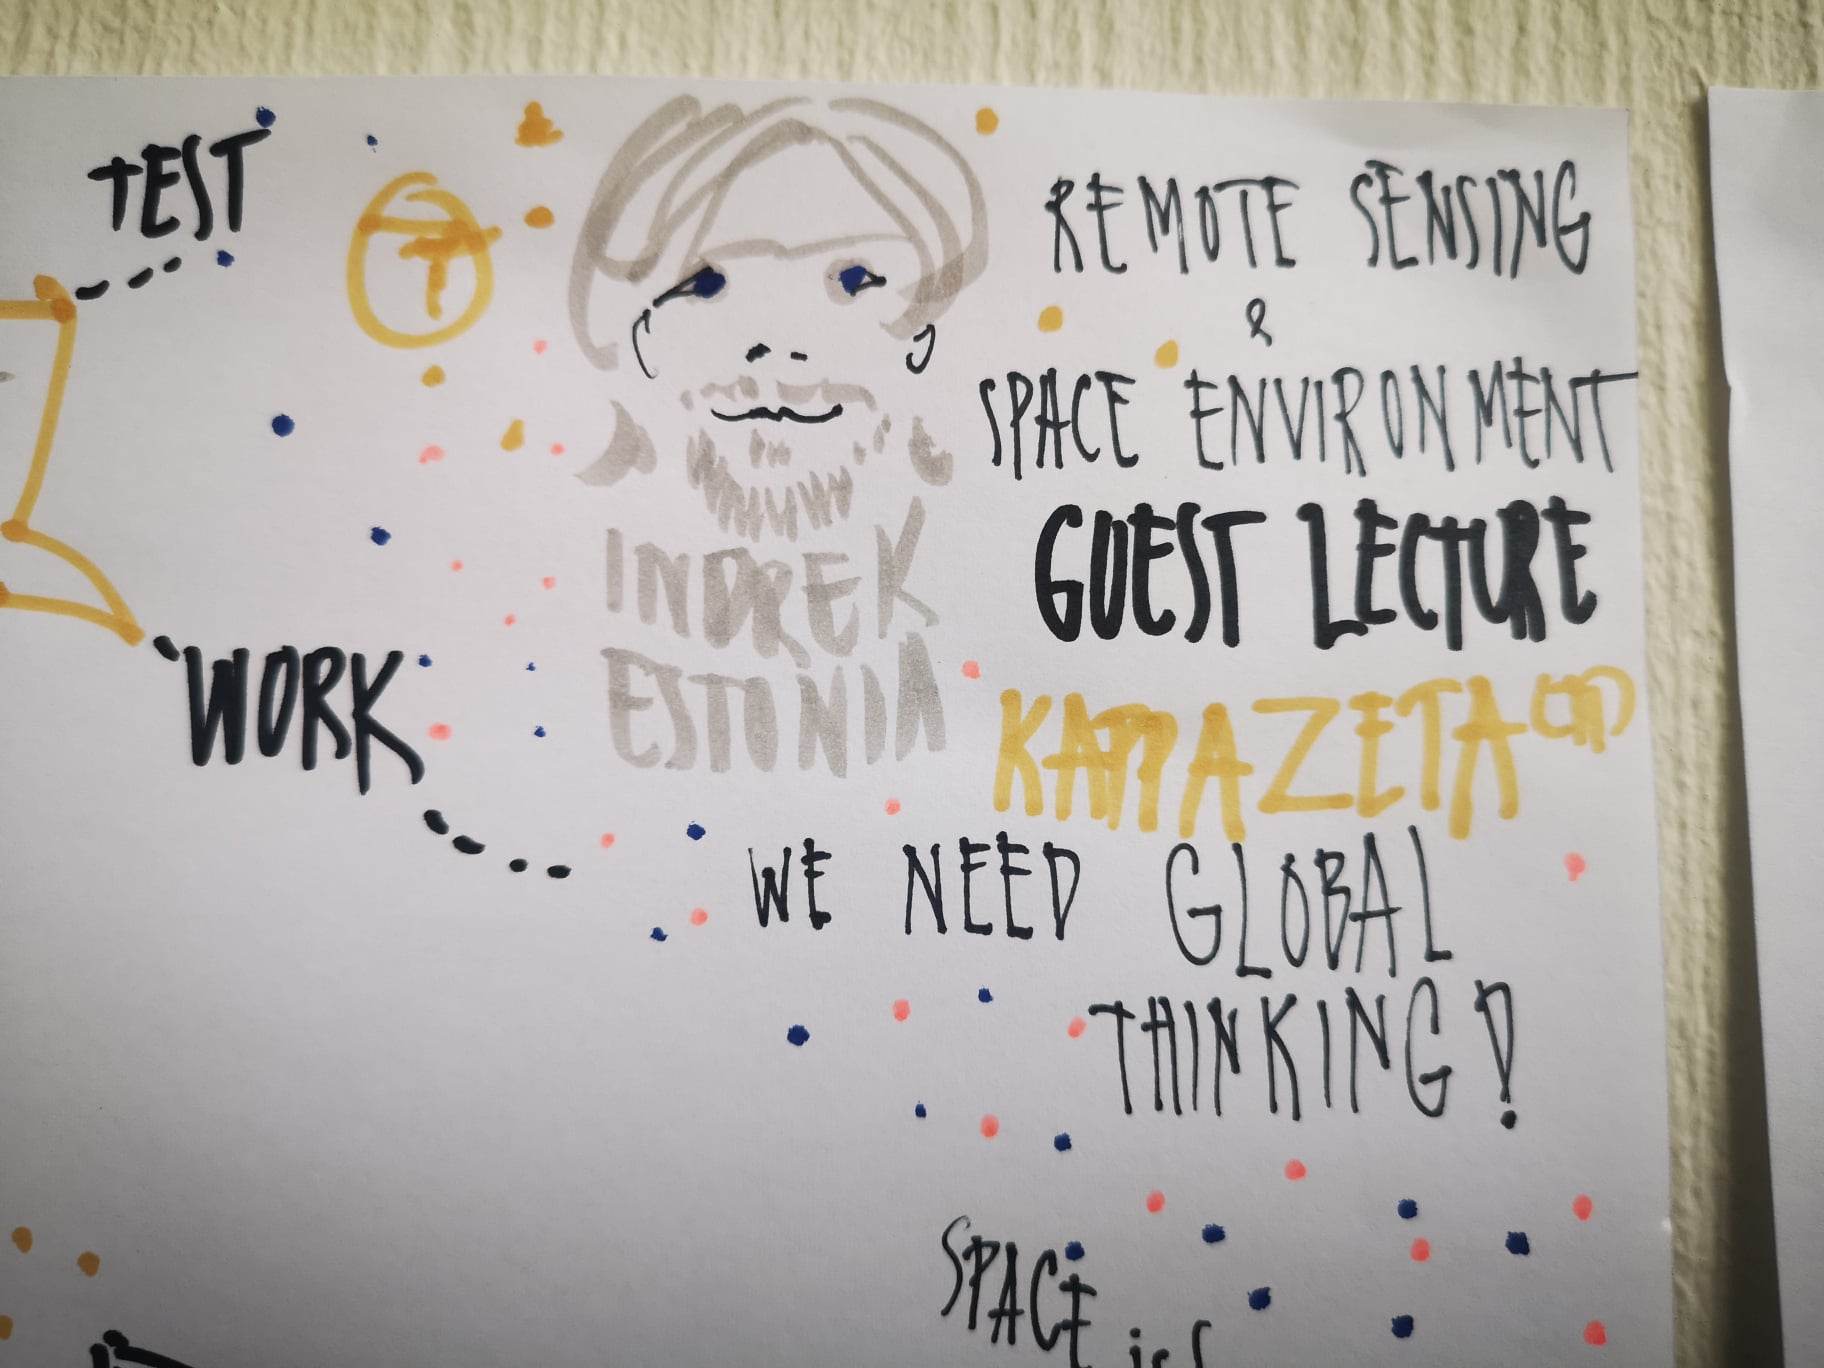 TEST
T
REMOTE SENSING
&
SPACE ENVIRONMENT
GUEST LECTURE
INDREK
ESTONIA
WORK
KAPPAZETA
WE NEED GLOBAL
THINKING!
SPACE